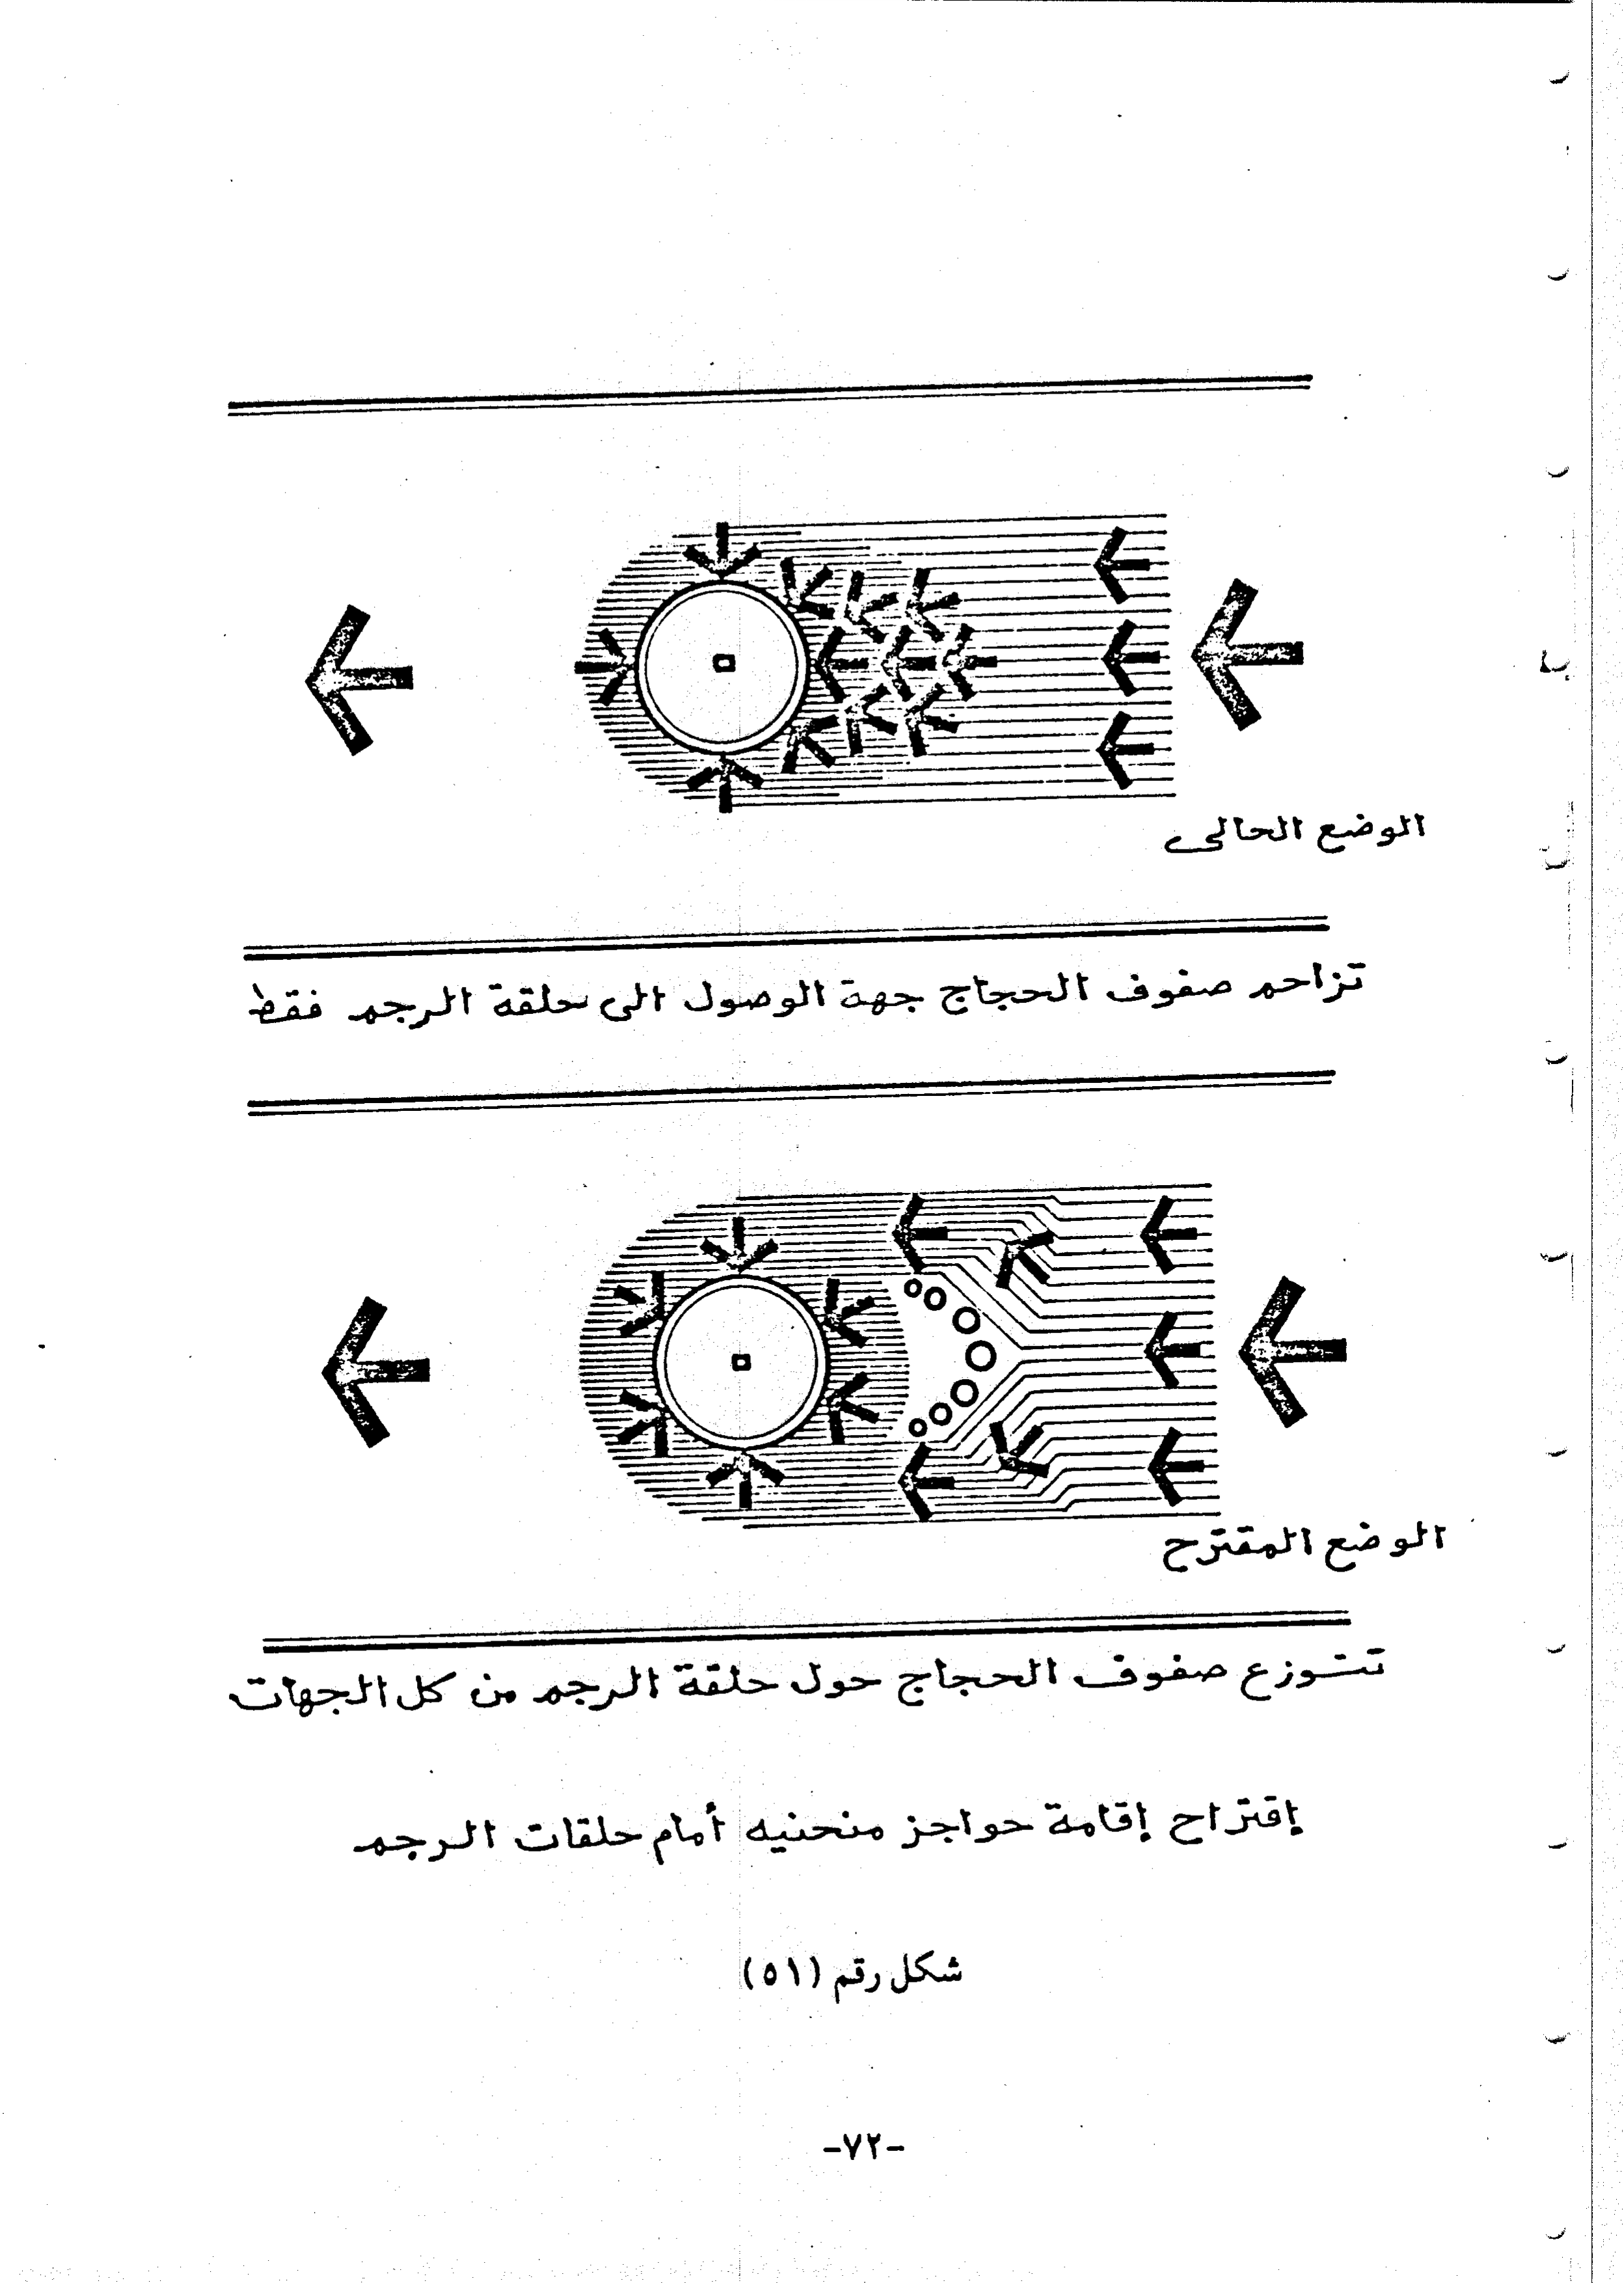 الوضع الحالى
تزاحم صفوف الحجاج جهة الوصول الى حلقة الرجم فقط
الوضع المقترح
تتوزع صفوف الحجاج حول حلقة الرجم من كل الجهات
إقتراح إقامة حواجز منحنيه أمام حلقات الرجم
شكل رقم (٥١)
-٧٢-